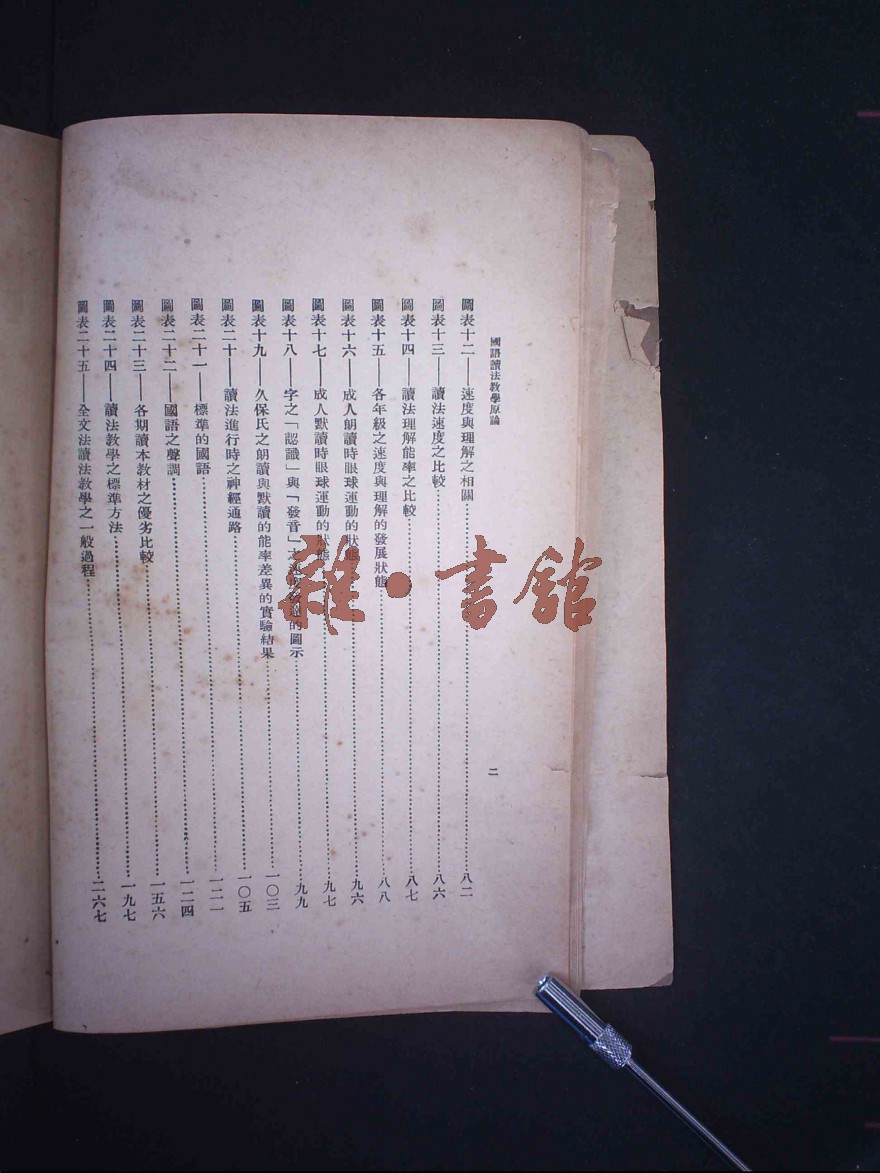 國語讀法教學原論
二
圖表十二——速度與理解之相關……八二
圖表十三——讀法速度之比較……八六
圖表十四——讀法理解能率之比較……八七
圖表十五——各年級之速度與理解的發展狀態……八八
圖表十六——成人朗讀時眼球運動的狀態……九六
圖表十七——成人默讀時眼球運動的狀態……九七
圖表十八——字之「認識」與「發音」之速度發達的圖示……九九
圖表十九——久保氏之朗讀與默讀的能率差異的實驗結果……一〇三
圖表二十——讀法進行時之神經通路……一〇五
圖表二十一——標準的國語……一二一
圖表二十二——國語之聲調……一二四
圖表二十三——各期讀本教材之優劣比較……一五六
圖表二十四——讀法教學之標準方法……一九七
圖表二十五——全文法讀法教學之一般過程……二六七
雜·書館